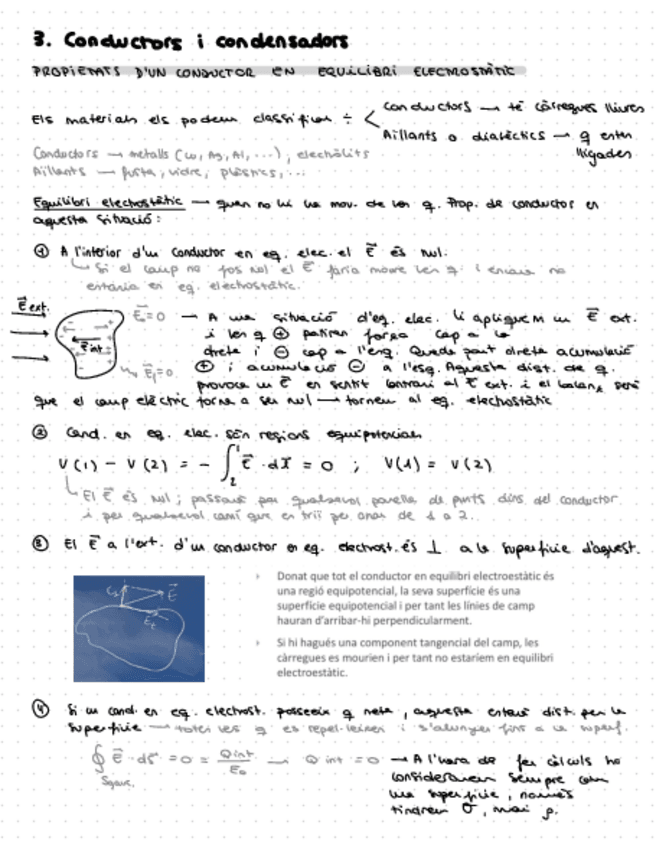 3. Conductors i condensadors
PROPIETATS D'UN CONDUCTOR EN EQUILIBRI ELECTROSTÀTIC
Els materials els podem classificar ÷ < conductors → té càrregues lliures
Aïllants o dialèctics → q estan lligades
Conductors → metalls (Cu, Ag, Al, ...), electròlits
Aïllants → fusta, vidre, plàstics, ...
Equilibri electrostàtic → quan no hi ha mov. de les q. Prop. de conductor en
aquesta situació:
① A l'interior d'un conductor en eq. elec. el E⃗ és nul.
↳ Si el camp no fos nul el E⃗ faria moure les q i encara no
estaria en eq. electrostàtic.
E⃗ ext.
E⃗ int
E⃗=0 → A una situació d'eq. elec. li apliquem un E⃗ ext.
i les q ⊕ patiran força cap a la
dreta i ⊖ cap a l'esq. Queda part dreta acumulació
⊕ i acumulació ⊖ a l'esq. Aquesta dist. de q.
E⃗=0.
provoca un E⃗ en sentit contrari al E⃗ ext. i el balanç serà
que el camp elèctric torna a ser nul → tornem al eq. electrostàtic
② Cond. en eq. elec. són regions equipotencials
V(1) - V(2) = - ∫₂¹ E⃗ · dl⃗ = 0 ; V(1) = V(2)
↳ El E⃗ és nul; passant per qualsevol parella de punts dins del conductor
i per qualsevol camí que es triï per anar de 1 a 2.
③ El E⃗ a l'ext. d'un conductor en eq. electrost. és ⊥ a la superfície d'aquest.
E⃗
Eₜ
› Donat que tot el conductor en equilibri electroestàtic és
una regió equipotencial, la seva superfície és una
superfície equipotencial i per tant les línies de camp
hauran d'arribar-hi perpendicularment.
› Si hi hagués una component tangencial del camp, les
càrregues es mourien i per tant no estaríem en equilibri
electroestàtic.
④ Si un cond. en eq. electrost. posseeix q neta, aquesta estarà dist. per la
superfície → totes les q es repel·leixen i s'allunyen fins a la superf.
∮ E⃗ · ds⃗ = 0 = Qint/E₀ → Q int = 0 → A l'hora de fer càlculs ho
Sgauss.
considerarem sempre com
una superfície, només
tindrem σ, mai ρ.